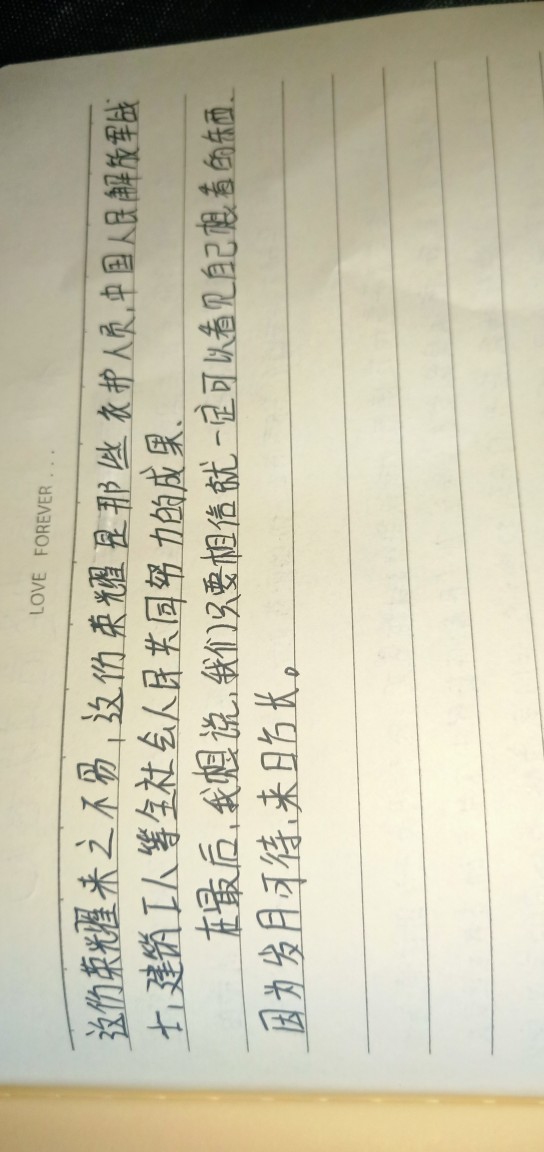 LOVE FOREVER...
这份荣耀来之不易,这份荣耀是那些衣护人员,中国人民解放军战
士,建筑工人等全社会人民共同努力的成果、
在最后,我想说,我们只要相信就一定可以看见自己想看的东西、
因为岁月可待,来日方长。